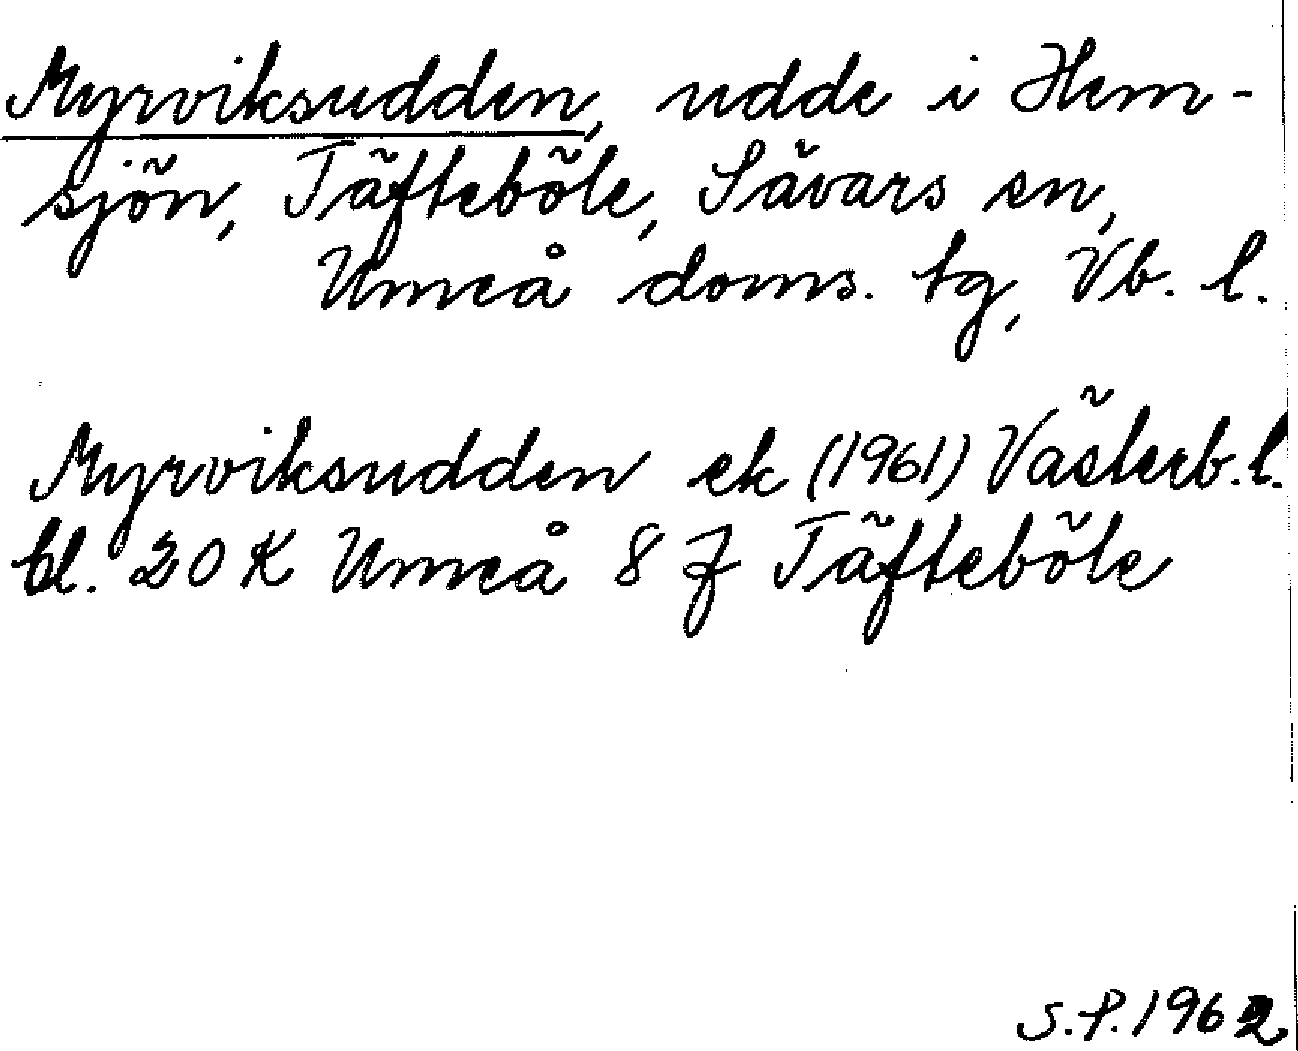 Myrviksudden, udde i Hem-
sjön, Täfteböle, Sävars sn,
Umeå doms. tg, Vb. l.
Myrviksudden ek (1961) Västerb. l.
bl. 20 K Umeå 8 f Täfteböle
S.P. 1962